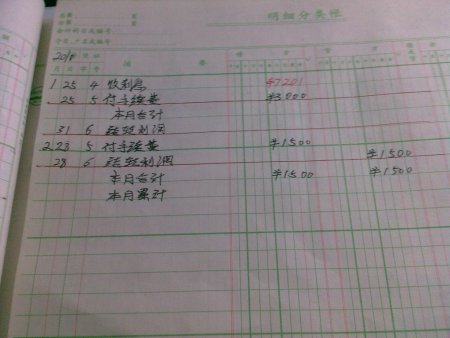 明细分类帐
借 方 贷 方
2018
月 日 字 号 摘 要
1 25 4 收利息 47201
25 5 付手续费 ¥3000
本月合计
31 6 结转利润
2 23 5 付手续费 ¥1500
28 6 结转利润 ¥1500
本月合计 ¥1500 ¥1500
本月累计